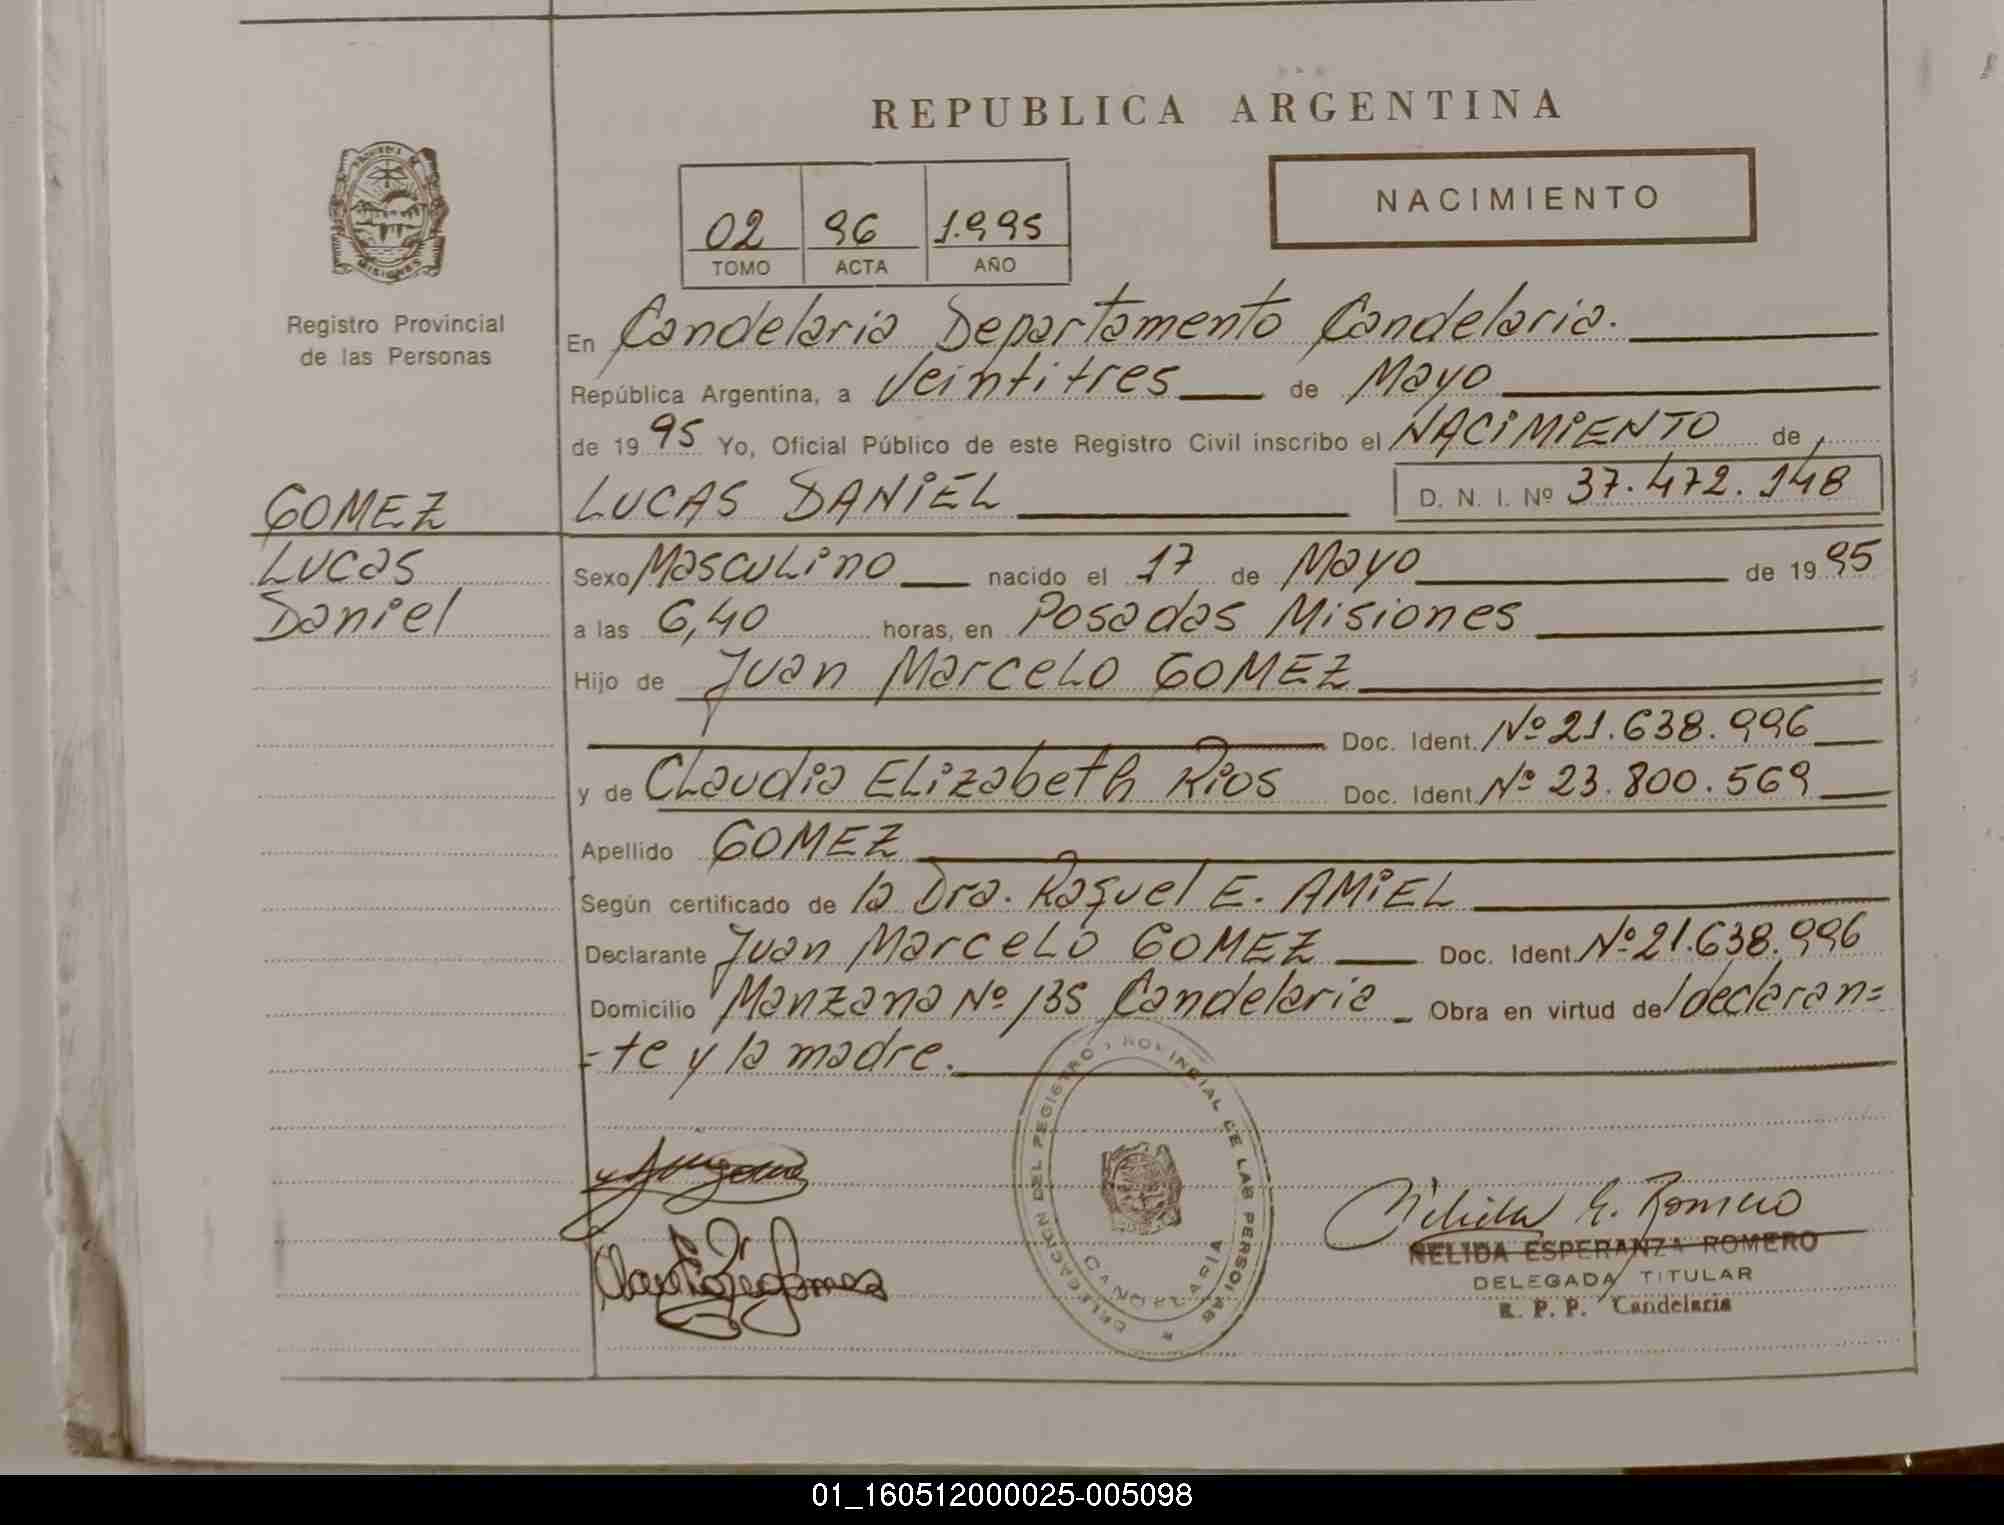 REPUBLICA ARGENTINA
NACIMIENTO
02 96 1.995
TOMO ACTA AÑO
MISIONES
Registro Provincial
de las Personas
En Candelaria Departamento Candelaria.
República Argentina, a Veintitres de Mayo
de 1995 Yo, Oficial Público de este Registro Civil inscribo el NACIMIENTO de
GOMEZ
Lucas
Daniel
LUCAS DANIEL D. N. I. Nº 37.472.148
Sexo Masculino nacido el 17 de Mayo de 1995
a las 6,40 horas, en Posadas Misiones
Hijo de Juan Marcelo GOMEZ
Doc. Ident. Nº 21.638.996
y de Claudia Elizabeth Rios Doc. Ident. Nº 23.800.569
Apellido GOMEZ
Según certificado de la Dra. Raquel E. AMIEL
Declarante Juan Marcelo GOMEZ Doc. Ident. Nº 21.638.996
Domicilio Manzana Nº 135 Candelaria _ Obra en virtud de declaran=
=te y la madre.
DELEGACION DEL REGISTRO PROVINCIAL DE LAS PERSONAS
CANDELARIA
Nélida E. Romero
NELIDA ESPERANZA ROMERO
DELEGADA TITULAR
R. P. P. Candelaria
01_160512000025-005098